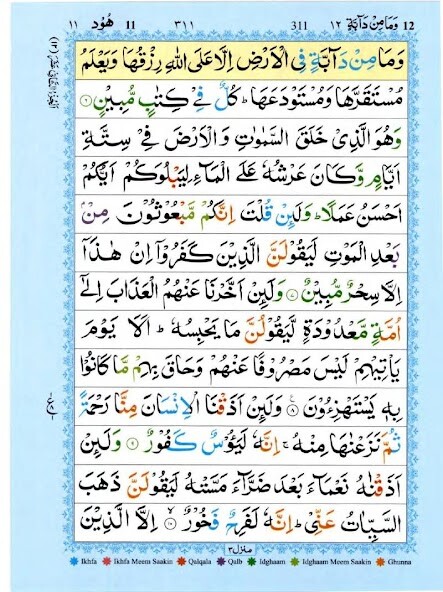 ١١ هُوْد 11 ٣١١ 311 وَمَا مِنْ دَآبَّةٍ ١٢ 12
وَمَا مِنْ دَآبَّةٍ فِى الْاَرْضِ اِلَّا عَلَى اللّٰهِ رِزْقُهَا وَيَعْلَمُ
مُسْتَقَرَّهَا وَمُسْتَوْدَعَهَا ؕ كُلٌّ فِىْ كِتٰبٍ مُّبِيْنٍ ۶
وَهُوَ الَّذِىْ خَلَقَ السَّمٰوٰتِ وَالْاَرْضَ فِىْ سِتَّةِ
اَيَّامٍ وَّكَانَ عَرْشُهٗ عَلَى الْمَآءِ لِيَبْلُوَكُمْ اَيُّكُمْ
اَحْسَنُ عَمَلًا ؕ وَلَئِنْ قُلْتَ اِنَّكُمْ مَّبْعُوْثُوْنَ مِنْۢ
بَعْدِ الْمَوْتِ لَيَقُوْلَنَّ الَّذِيْنَ كَفَرُوْۤا اِنْ هٰذَاۤ
اِلَّا سِحْرٌ مُّبِيْنٌ ۷ وَلَئِنْ اَخَّرْنَا عَنْهُمُ الْعَذَابَ اِلٰٓى
اُمَّةٍ مَّعْدُوْدَةٍ لَّيَقُوْلُنَّ مَا يَحْبِسُهٗ ؕ اَلَا يَوْمَ
يَاْتِيْهِمْ لَيْسَ مَصْرُوْفًا عَنْهُمْ وَحَاقَ بِهِمْ مَّا كَانُوْا
بِهٖ يَسْتَهْزِءُوْنَ ۸ وَلَئِنْ اَذَقْنَا الْاِنْسَانَ مِنَّا رَحْمَةً
ثُمَّ نَزَعْنٰهَا مِنْهُ ۚ اِنَّهٗ لَيَئُوْسٌ كَفُوْرٌ ۹ وَلَئِنْ
اَذَقْنٰهُ نَعْمَآءَ بَعْدَ ضَرَّآءَ مَسَّتْهُ لَيَقُوْلَنَّ ذَهَبَ
السَّيِّاٰتُ عَنِّىْ ؕ اِنَّهٗ لَفَرِحٌ فَخُوْرٌ ۱۰ اِلَّا الَّذِيْنَ
منزل ٣
Ikhfa Ikhfa Meem Saakin Qalqala Qalb Idghaam Idghaam Meem Saakin Ghunna